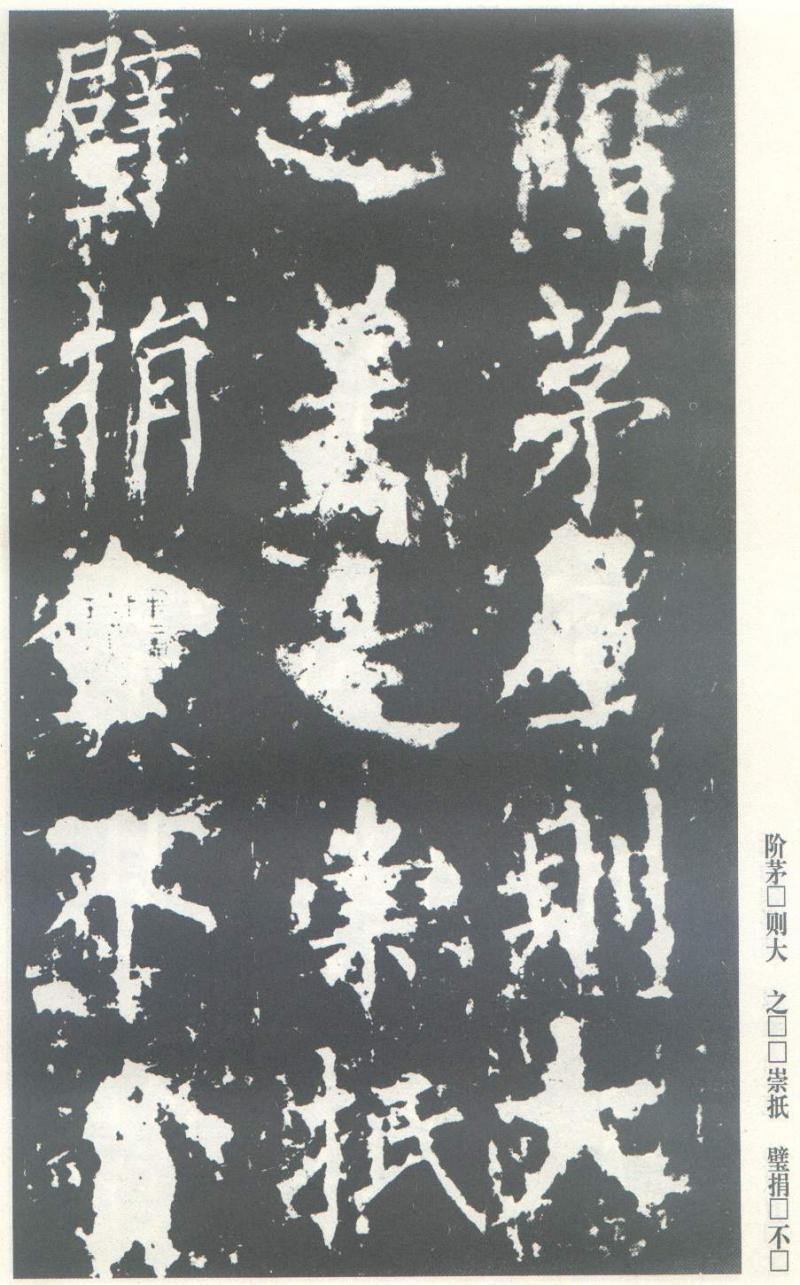 階茅則大
之崇抵
璧捐不
阶茅□则大 之□□崇抵 璧捐□不□